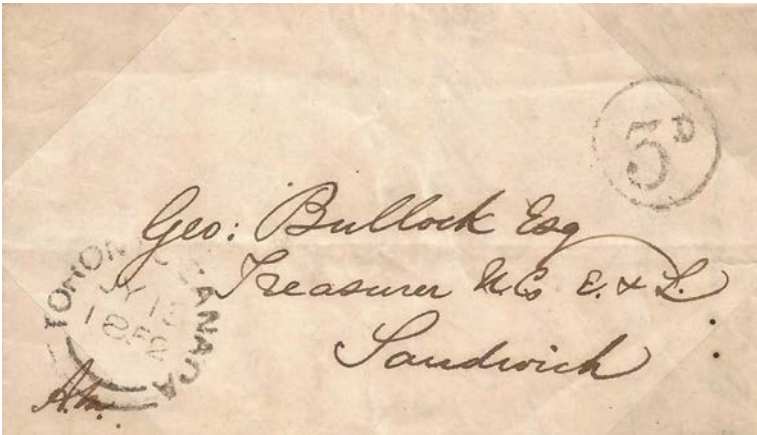 3D
Geo: Bullock Esq
Treasurer U.Co E. & L.
Sandwich
TORONTO CANADA
JY 15
1852